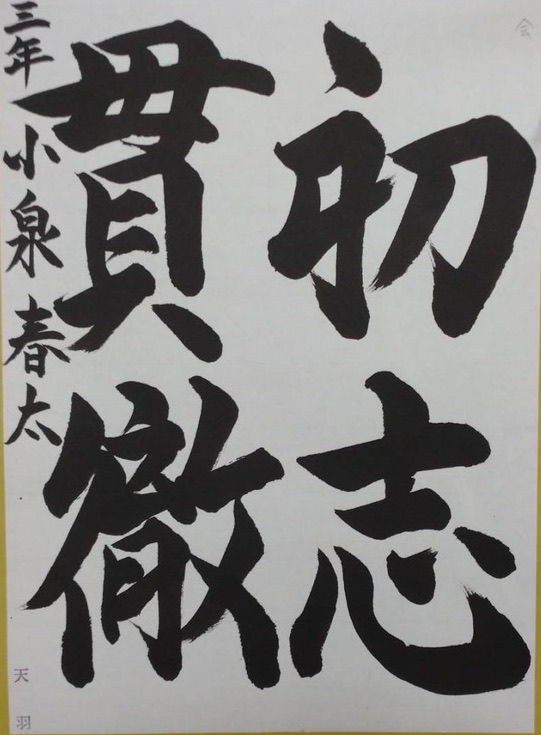 初志
貫徹
三年 小泉 春太
天羽
会